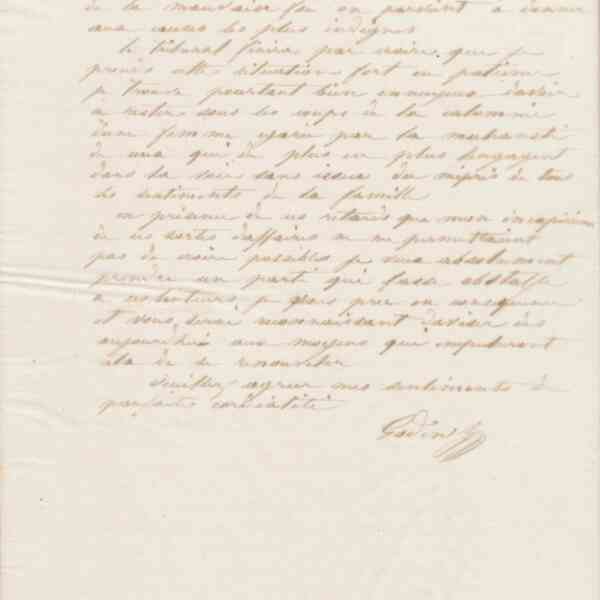 de la mauvaise foi on parvient à donner
aux causes les plus indignes
le tribunal finira par croire que je
prends cette situation fort en patience
je trouve pourtant bien ennuyeux d'avoir
à rester sous les coups de la calomnie
d'une femme égarée par la méchanceté
de ceux qui de plus en plus l'engagent
dans la voie sans issue du mépris de tous
les sentiments de la famille
en présence de ces retards que mon inexpérience
de ces sortes d'affaires ne me permettaient
pas de croire possibles je veux absolument
prendre un parti qui fasse obstacle
à ces lenteurs je vous prie en conséquence
et vous serai reconnaissant d'aviser dès
aujourd'hui aux moyens qui empêcheront
cela de se renouveler
veuillez agréer mes sentiments de
parfaite cordialité
Godin